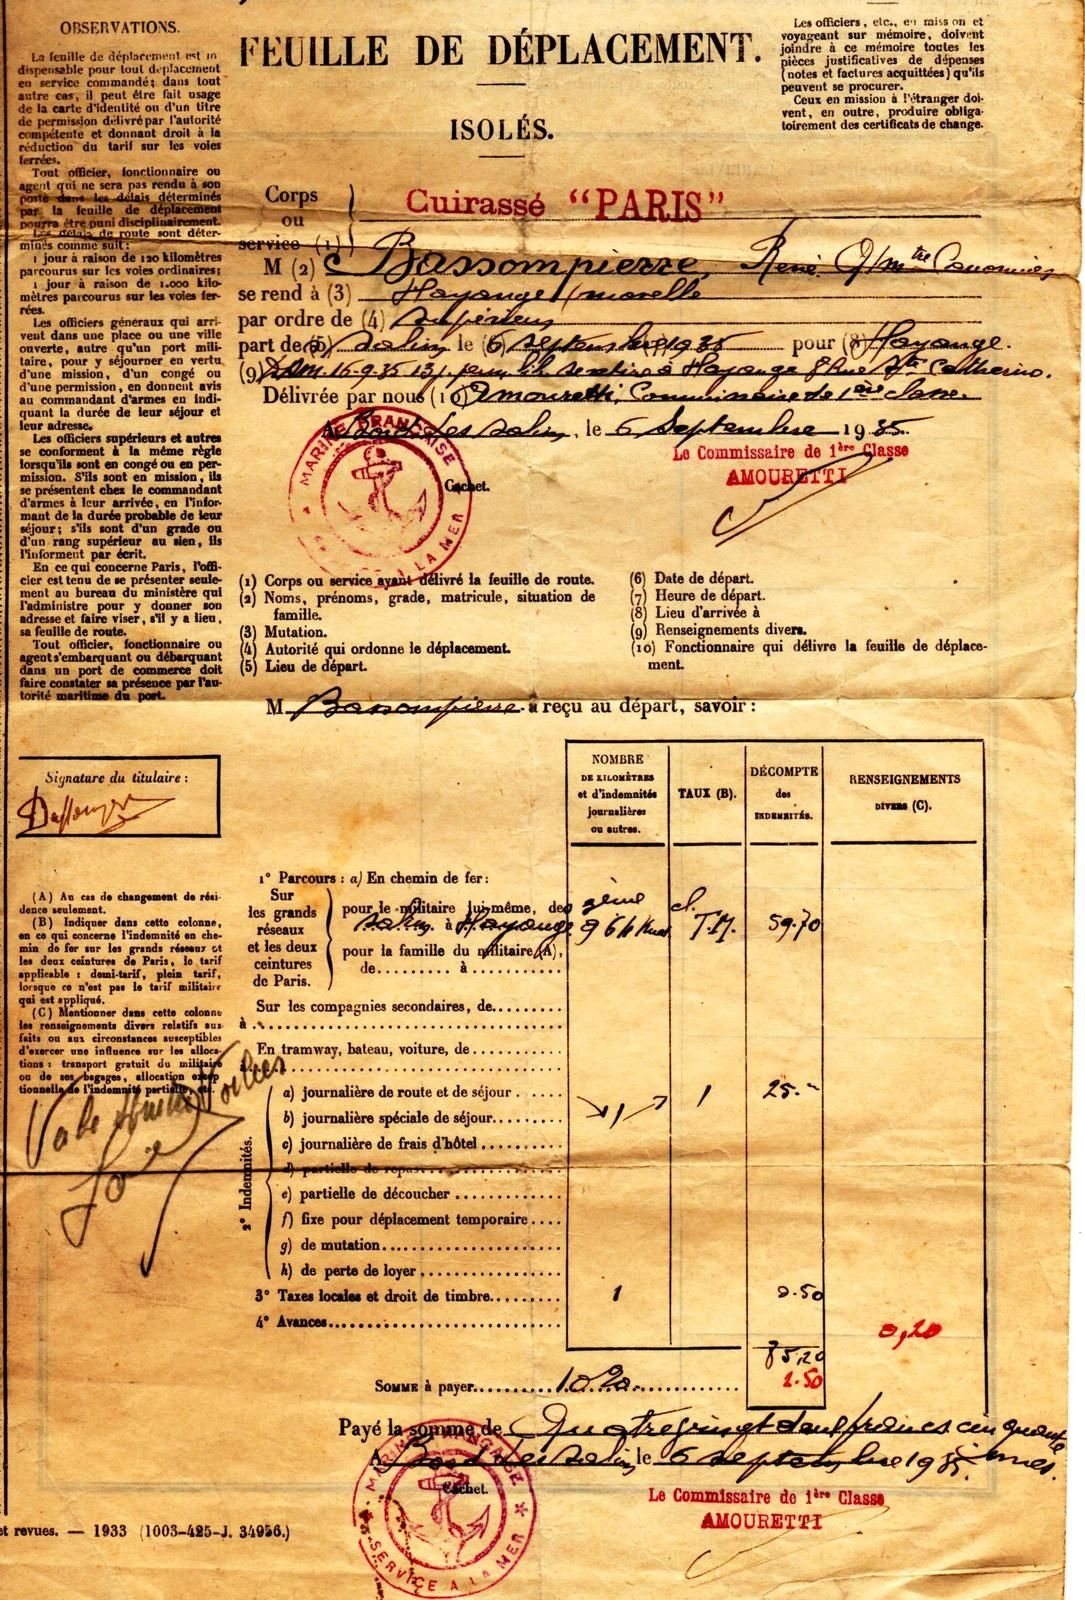 OBSERVATIONS.
La feuille de déplacement est in
dispensable pour tout déplacement
en service commandé; dans tout
autre cas, il peut être fait usage
de la carte d'identité ou d'un titre
de permission délivré par l'autorité
compétente et donnant droit à la
réduction du tarif sur les voies
ferrées.
Tout officier, fonctionnaire ou
agent qui ne sera pas rendu à son
poste dans les délais déterminés
par la feuille de déplacement
pourra être puni disciplinairement.
Les délais de route sont déter-
minés comme suit :
1 jour à raison de 120 kilomètres
parcourus sur les voies ordinaires;
1 jour à raison de 1.000 kilo-
mètres parcourus sur les voies fer-
rées.
Les officiers généraux qui arri-
vent dans une place ou une ville
ouverte, autre qu'un port mili-
taire, pour y séjourner en vertu
d'une mission, d'un congé ou
d'une permission, en donnent avis
au commandant d'armes en indi-
quant la durée de leur séjour et
leur adresse.
Les officiers supérieurs et autres
se conforment à la même règle
lorsqu'ils sont en congé ou en per-
mission. S'ils sont en mission, ils
se présentent chez le commandant
d'armes à leur arrivée, en l'infor-
mant de la durée probable de leur
séjour; s'ils sont d'un grade ou
d'un rang supérieur au sien, ils
l'informent par écrit.
En ce qui concerne Paris, l'offi-
cier est tenu de se présenter seule-
ment au bureau du ministère qui
l'administre pour y donner son
adresse et faire viser, s'il y a lieu,
sa feuille de route.
Tout officier, fonctionnaire ou
agent s'embarquant ou débarquant
dans un port de commerce doit
faire constater sa présence par l'au-
torité maritime du port.
FEUILLE DE DÉPLACEMENT.
ISOLÉS.
Les officiers, etc., en mission et
voyageant sur mémoire, doivent
joindre à ce mémoire toutes les
pièces justificatives de dépenses
(notes et factures acquittées) qu'ils
peuvent se procurer.
Ceux en mission à l'étranger doi-
vent, en outre, produire obliga-
toirement des certificats de change.
Corps
ou
service (1)
Cuirassé "PARIS"
M (2) Bassompierre, René Q/mtre Canonnier
se rend à (3) Hayange (moselle
par ordre de (4) supérieur
part de (5) Salins le (6) 6 septembre (7) 1935 pour (8) Hayange.
(9) 16-9-35 se retire à Hayange 8 Rue Ste Catherine.
Délivrée par nous (10) Amouretti, Commissaire de 1ère classe.
A Bord, les Salins, le 6 Septembre 1935
Le Commissaire de 1ère Classe
AMOURETTI
MARINE FRANÇAISE
SERVICE A LA MER
Cachet.
(1) Corps ou service ayant délivré la feuille de route.
(2) Noms, prénoms, grade, matricule, situation de
famille.
(3) Mutation.
(4) Autorité qui ordonne le déplacement.
(5) Lieu de départ.
(6) Date de départ.
(7) Heure de départ.
(8) Lieu d'arrivée à
(9) Renseignements divers.
(10) Fonctionnaire qui délivre la feuille de déplace-
ment.
M Bassompierre a reçu au départ, savoir :
Signature du titulaire :
(A) Au cas de changement de rési-
dence seulement.
(B) Indiquer dans cette colonne,
en ce qui concerne l'indemnité en che-
min de fer sur les grands réseaux et
les deux ceintures de Paris, le tarif
applicable : demi-tarif, plein tarif,
lorsque ce n'est pas le tarif militaire
qui est appliqué.
(C) Mentionner dans cette colonne
les renseignements divers relatifs aux
faits ou aux circonstances susceptibles
d'exercer une influence sur les alloca-
tions : transport gratuit du militaire
ou de ses bagages, allocation excep
tionnelle de l'indemnité partielle, etc.
NOMBRE
DE KILOMÈTRES
et d'indemnités
journalières
ou autres.
TAUX (B).
DÉCOMPTE
des
INDEMNITÉS.
RENSEIGNEMENTS
DIVERS (C).
1° Parcours : a) En chemin de fer :
Sur
les grands
réseaux
et les deux
ceintures
de Paris.
pour le militaire lui-même, de 3ème cl.
Salins à Hayange T.M. 59.70
pour la famille du militaire (A),
de......... à.........
Sur les compagnies secondaires, de.........
à
En tramway, bateau, voiture, de
à
2° Indemnités.
a) journalière de route et de séjour . 1 1 25.-
b) journalière spéciale de séjour
c) journalière de frais d'hôtel
d) partielle de repas
e) partielle de découcher
f) fixe pour déplacement temporaire
g) de mutation
h) de perte de loyer
3° Taxes locales et droit de timbre 1 0.50
4° Avances
0,20
85,20
2.50
SOMME à payer
Payé la somme de
A Bord les Salins, le 6 septembre 1935.
Cachet.
MARINE FRANÇAISE
SERVICE A LA MER
Le Commissaire de 1ère Classe
AMOURETTI
et revues. — 1933 (1003-425-J. 34956.)